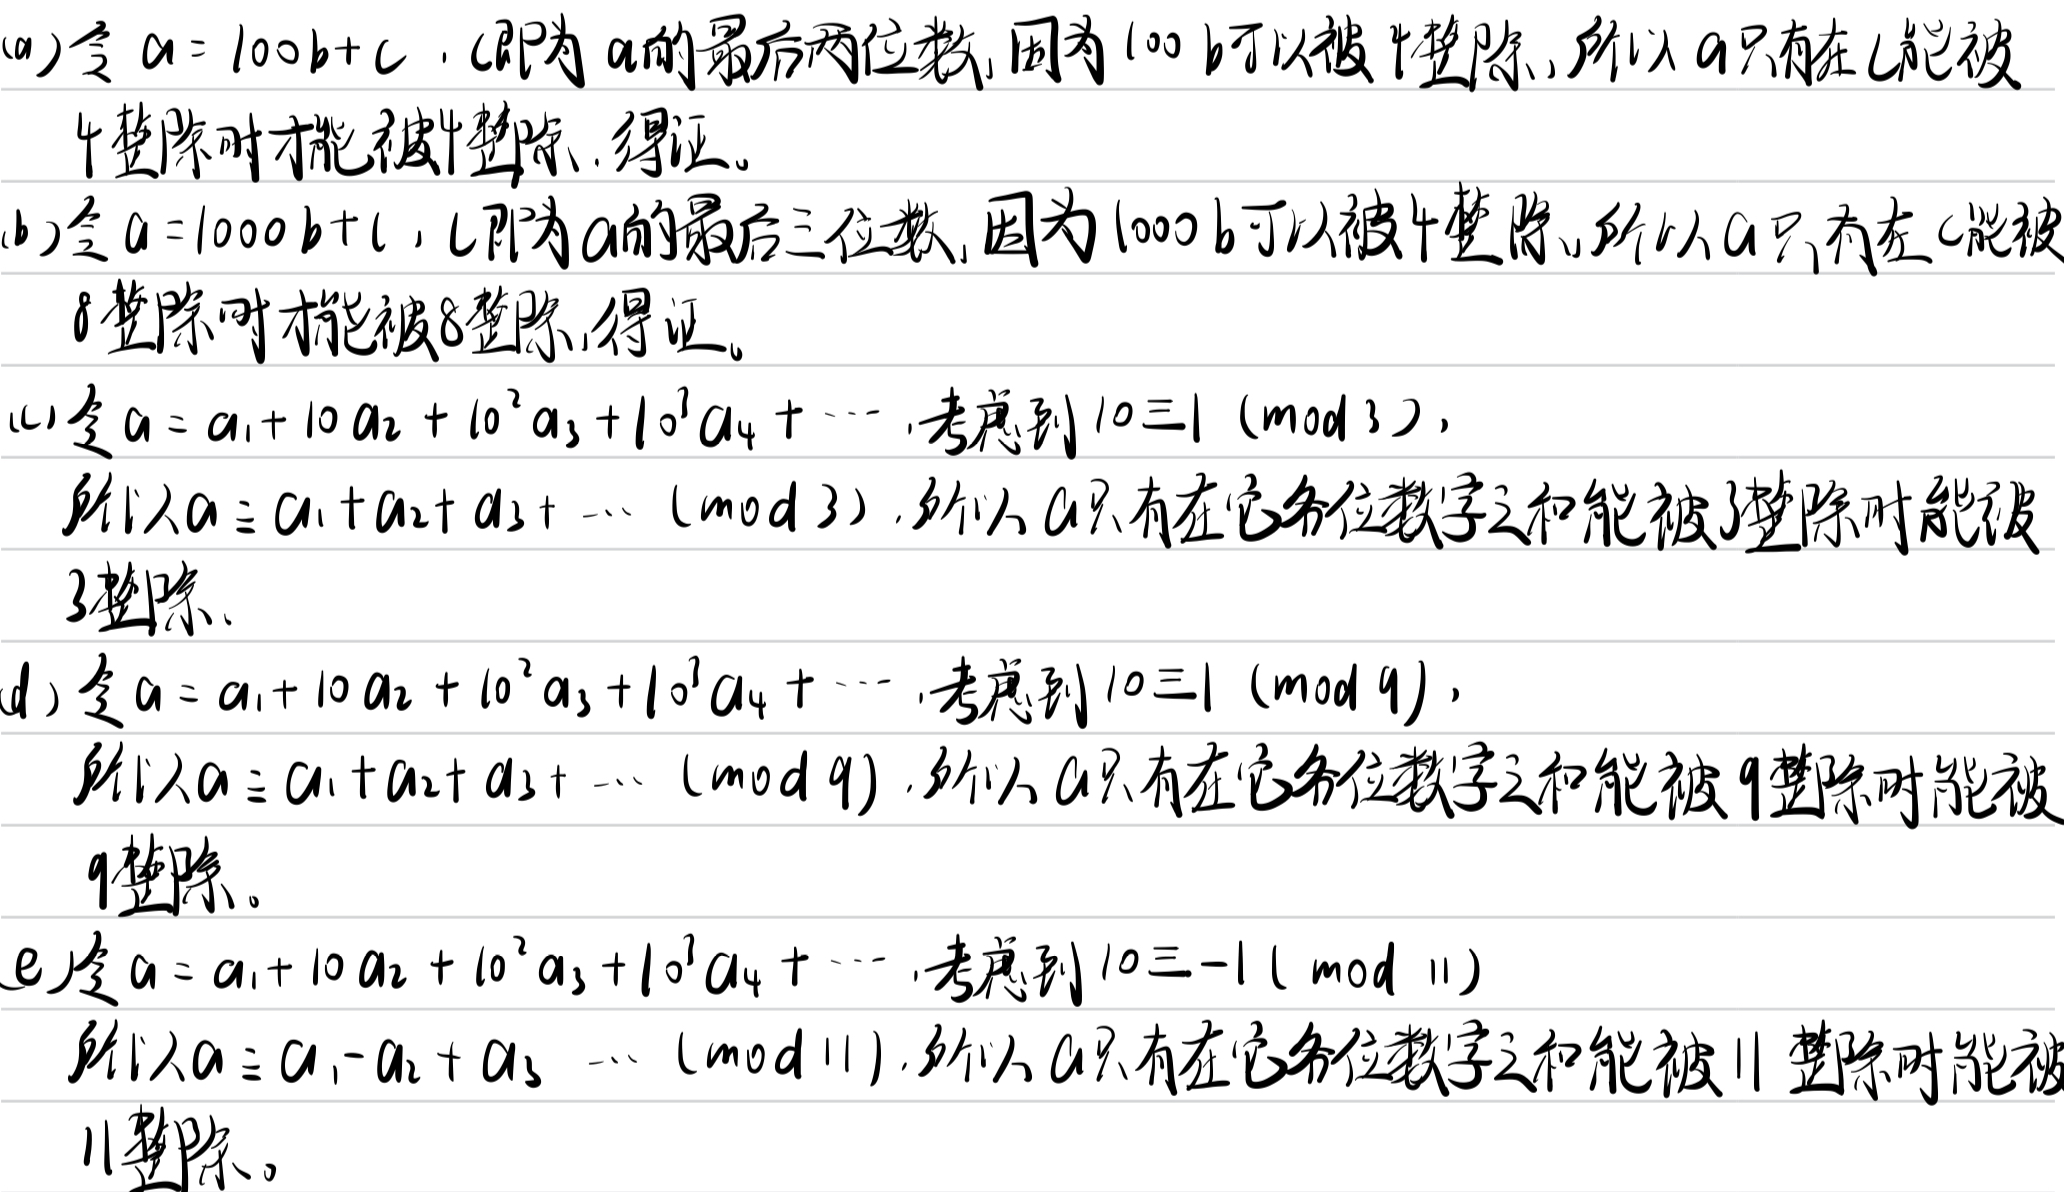 (a)令 a=100b+c,c即为 a的最后两位数,因为100b可以被4整除,所以a只有在c能被
4整除时才能被4整除,得证。
(b)令 a=1000b+c,c即为a的最后三位数,因为1000b可以被4整除,所以a只有在c能被
8整除时才能被8整除,得证。
(c)令 a = a₁+10a₂+10²a₃+10³a₄+…,考虑到10≡1 (mod 3),
所以a≡a₁+a₂+a₃+… (mod 3),所以a只有在它各位数字之和能被3整除时能被
3整除、
(d)令 a = a₁+10a₂+10²a₃+10³a₄+…,考虑到10≡1 (mod 9),
所以a≡a₁+a₂+a₃+… (mod 9),所以a只有在它各位数字之和能被9整除时能被
9整除。
(e)令 a = a₁+10a₂+10²a₃+10³a₄+…,考虑到10≡-1(mod 11)
所以a≡a₁-a₂+a₃ … (mod 11),所以a只有在它各位数字之和能被11整除时能被
11整除。